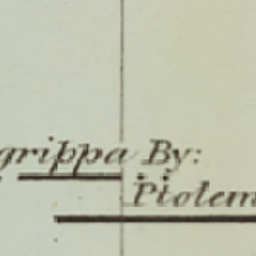 grippa By:
Ptolem